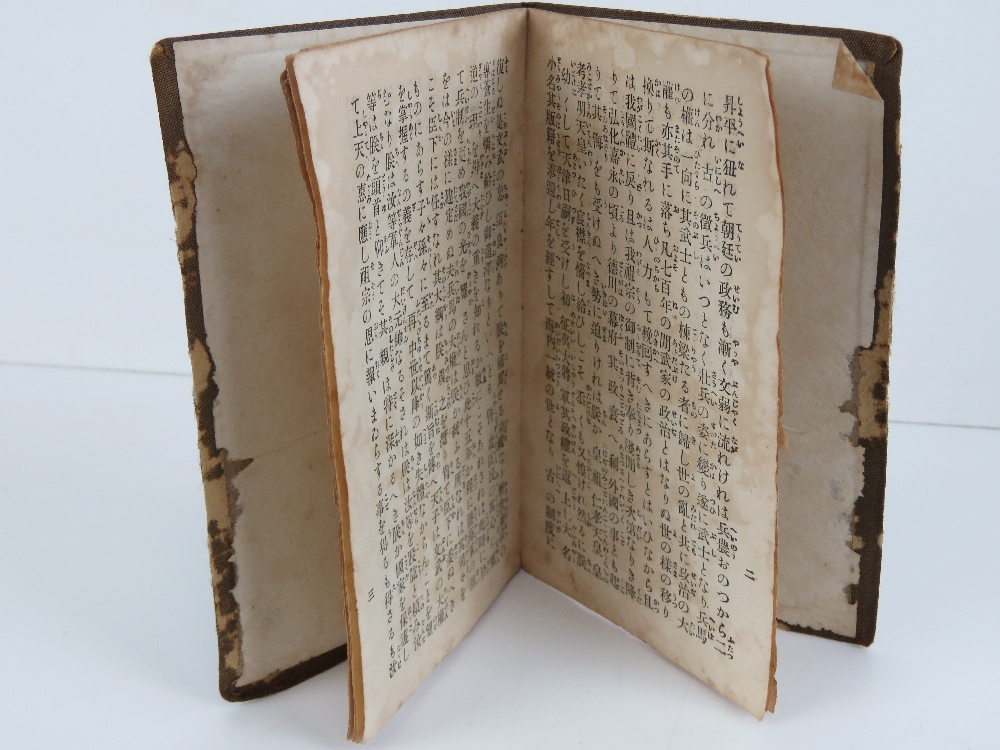 昇平に狃れて朝廷の政務も漸く文弱に流れけれは兵農おのつから二
に分れ古の徴兵はいつとなく壯兵の姿に變り遂に武士となり兵馬
の權は一向に其武士ともの棟梁たる者に歸し世の亂と共に政治の大
權も亦其手に落ち凡七百年の間武家の政治とはなりぬ世の樣の移り
換りて斯なれるは人力もて挽回すへきにあらすとはいひなから且
は我國體に戻り且は我祖宗の御制に背き奉り淺間しき次第なりき降
りて弘化嘉永の頃より德川の幕府其政衰へ剩外國の事とも起
りて其侮をも受けぬへき勢に迫りけれは朕か皇祖仁孝天皇皇
考孝明天皇いたく宸襟を惱し給ひしこそ忝くも又惶けれ然るに朕
幼くして天津日嗣を受けし初征夷大將軍其政權を返上し大名
小名其版籍を奉還し年を經すして海内一統の世となり古の制度に
二
復しぬ是文武の忠臣良弼ありて朕を輔翼せる功績なり
專蒼生を憐み給ひし御遺澤なり
逆の理を辨へ大義の重きを知れるか故にこそあれされは
て兵制を更め我國の光を
をは今の樣に建定めぬ夫兵馬の大權は朕か統ふる所なれは
こそ臣下には任すなれ其大綱は朕親之を攬り肯て臣下に委ぬへき
ものにあらす子々孫々に至るまて篤く斯旨を傳へ天子は文武の大權
を掌握するの義を存して再中世以降の如き失體なからんことを望
むなり朕は汝等軍人の大元帥なるそされは朕は汝等を股肱と頼み汝
等は朕を頭首と仰きてそ其親は特に深かるへき朕か國家を保護し
て上天の惠に應し祖宗の恩に報いまゐらする事を得るも得さるも汝
三